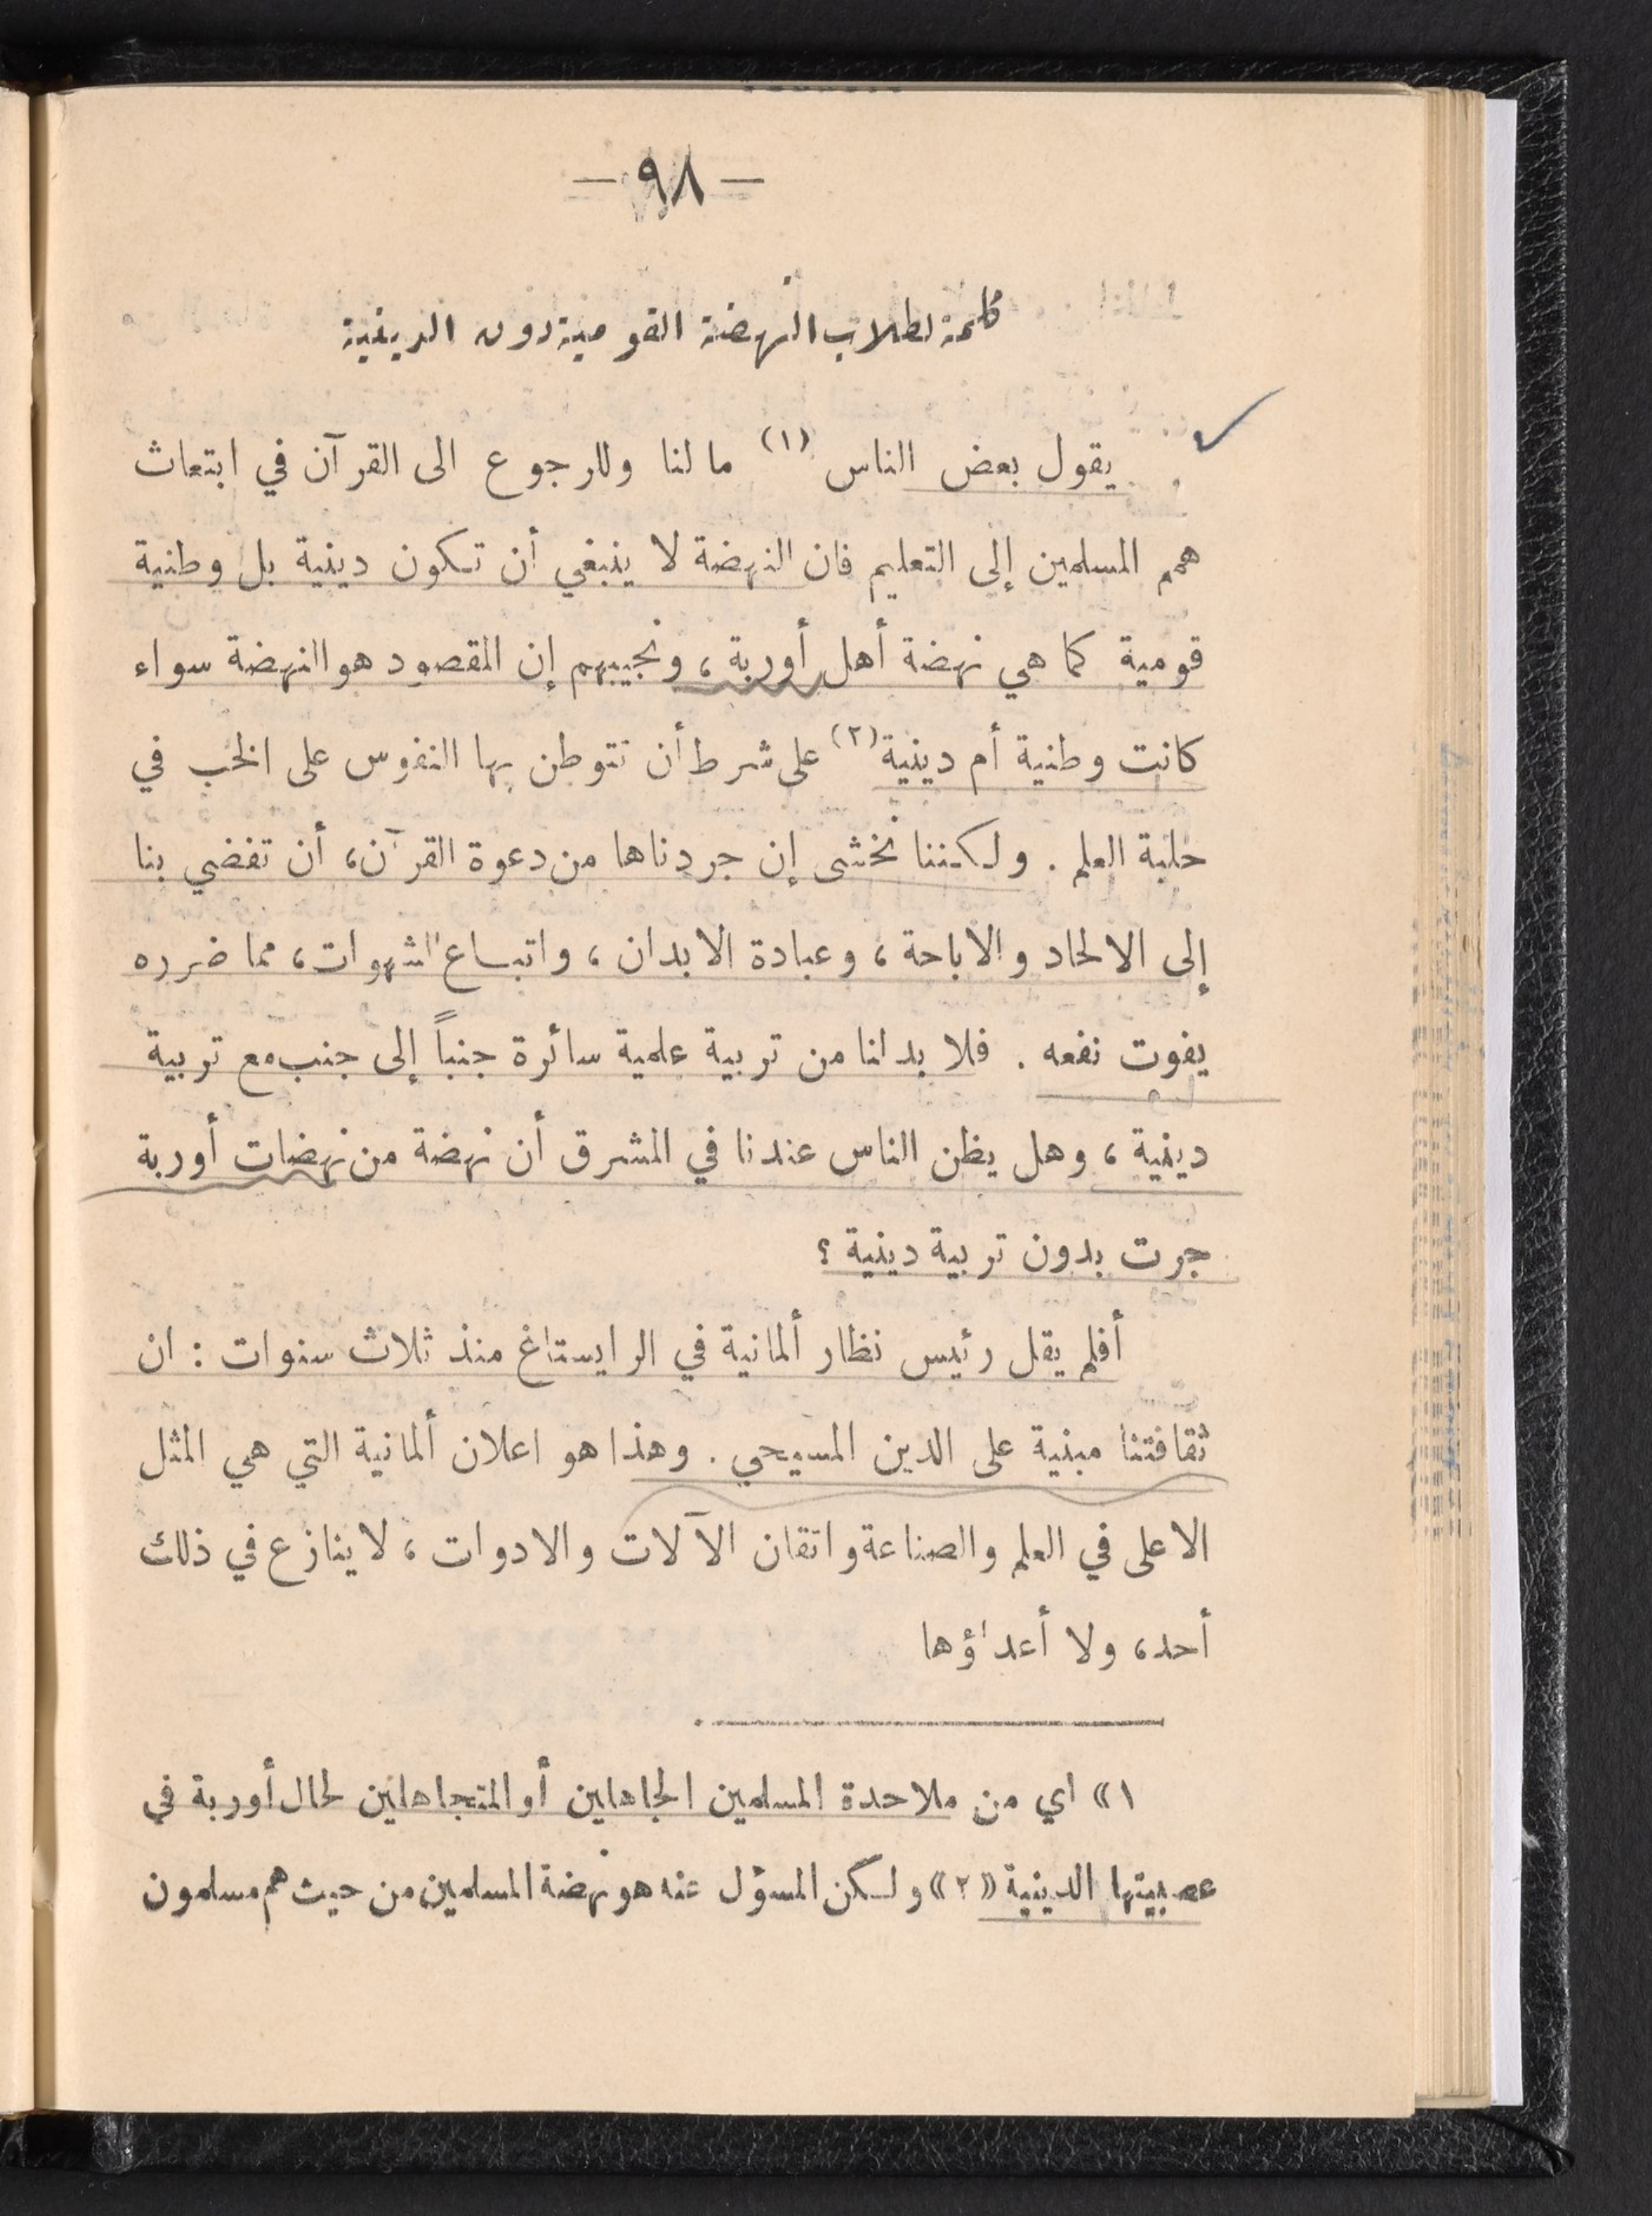 — ٩٨ —
كلمة لطلاب النهضة القومية دون الدينية
يقول بعض الناس (١) ما لنا وللرجوع الى القرآن في ابتعاث
همم المسلمين إلى التعليم فان النهضة لا ينبغي أن تكون دينية بل وطنية
قومية كما هي نهضة أهل أوربة ، ونجيبهم إن المقصود هو النهضة سواء
كانت وطنية أم دينية (٢) على شرط أن تتوطن بها النفوس على الخب في
حلبة العلم . ولكننا نخشى إن جردناها من دعوة القرآن، أن تفضي بنا
إلى الالحاد والاباحة ، وعبادة الابدان ، واتباع الشهوات، مما ضرره
يفوت نفعه . فلا بد لنا من تربية علمية سائرة جنباً إلى جنب مع تربية
دينية ، وهل يظن الناس عندنا في الشرق أن نهضة من نهضات أوربة
جرت بدون تربية دينية ؟
أفلم يقل رئيس نظار ألمانية في الرايستاغ منذ ثلاث سنوات : ان
ثقافتنا مبنية على الدين المسيحي . وهذا هو اعلان ألمانية التي هي المثل
الاعلى في العلم والصناعة واتقان الآلات والادوات ، لا ينازع في ذلك
أحد، ولا أعداؤها
١» اي من ملاحدة المسلمين الجاهلين أو المتجاهلين لحال أوربة في
عصبيتها الدينية «٢» ولكن المسؤل عنه هو نهضة المسلمين من حيث هم مسلمون